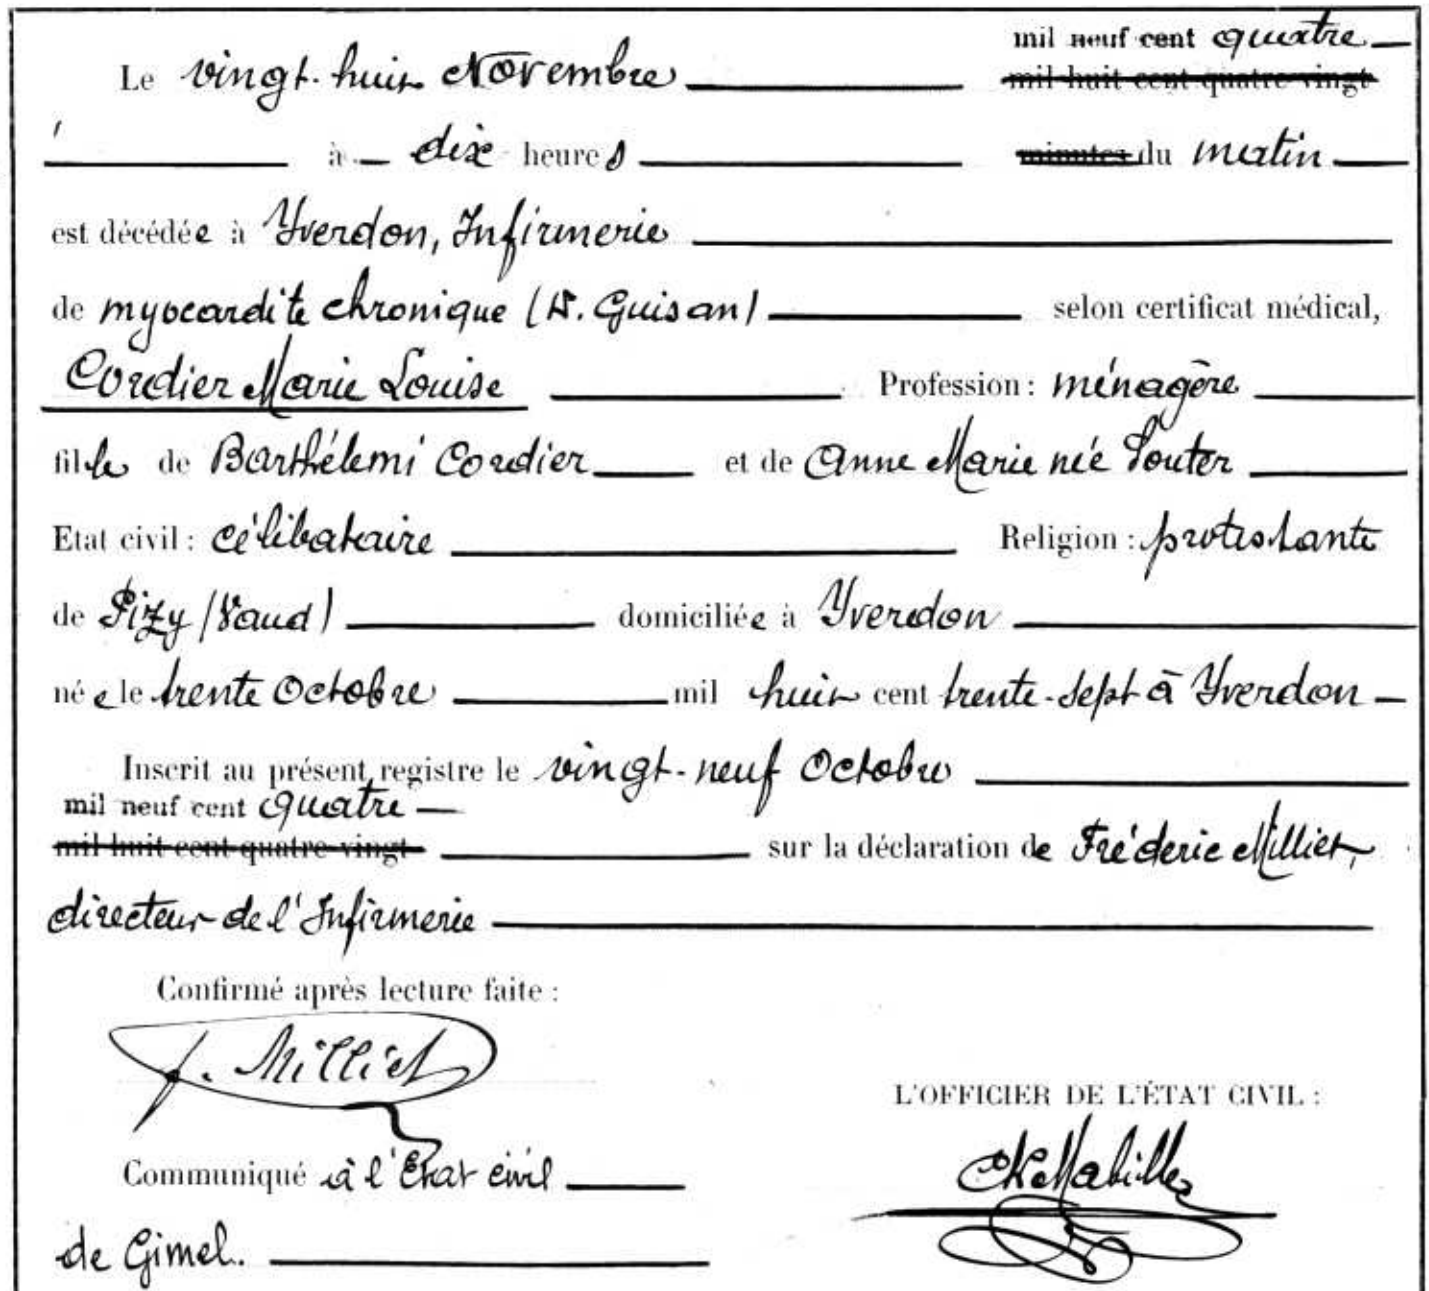 mil neuf cent quatre
Le vingt-huit Novembre mil huit cent quatre-vingt
à dix heures minutes du matin
est décédée à Yverdon, Infirmerie
de myocardite chronique (D. Guisan) selon certificat médical,
Cordier Marie Louise Profession : ménagère
fille de Barthélemi Cordier et de Anne Marie née Souter
Etat civil : célibataire Religion : protestante
de Pizy (Vaud) domiciliée à Yverdon
née le trente Octobre mil huit cent trente-sept à Yverdon
Inscrit au présent registre le vingt-neuf Octobre
mil neuf cent quatre
mil huit cent quatre-vingt sur la déclaration de Fréderic Milliet,
directeur de l'Infirmerie
Confirmé après lecture faite :
f. Milliet
L'OFFICIER DE L'ÉTAT CIVIL :
Communiqué à l'Etat civil
Ch Mabille
de Gimel.